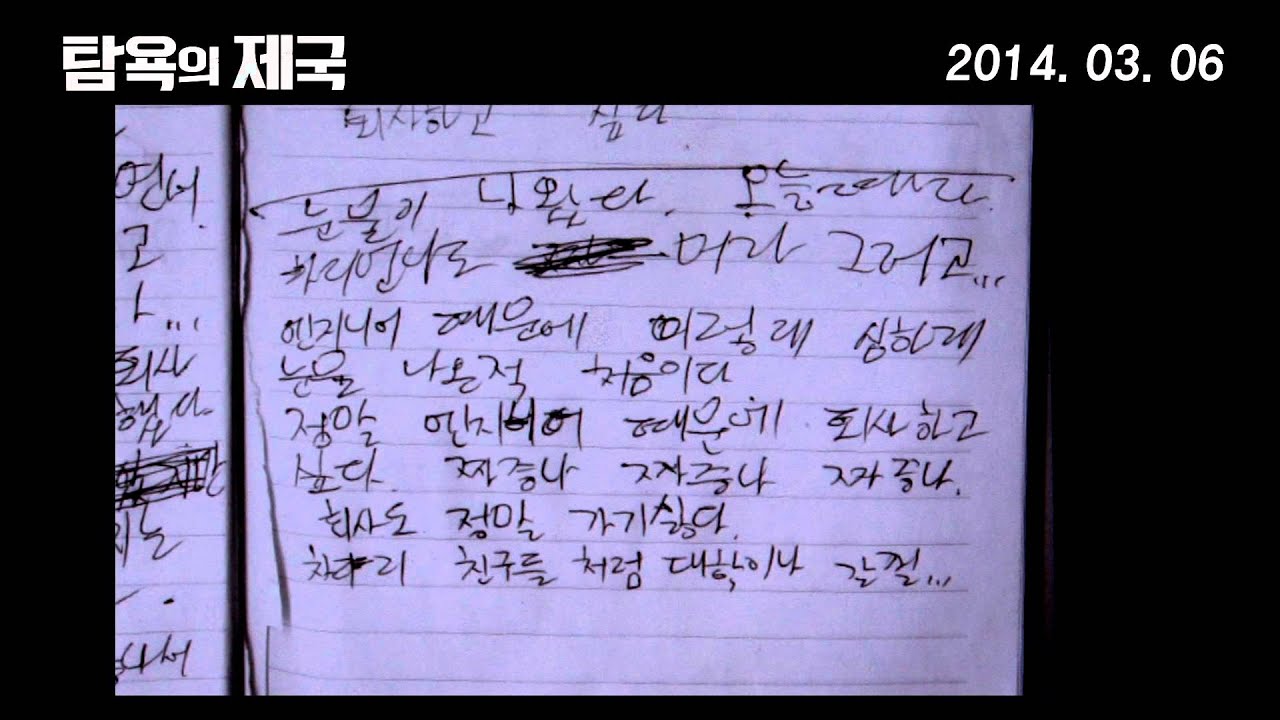 탐욕의 제국
2014. 03. 06
회사하고 싶다
눈물이 나왔다. 오늘
머라 그러고...
엔지니어 때문에 이렇래 심하게
눈물 나온적 처음이다
정말 엔지니어 때문에 회사하고
싶다. 짜증나 짜증나 짜증나.
회사도 정말 가기싫다.
차라리 친구들 처럼 대학이나 갈껄...
연어
고
회사
했다.